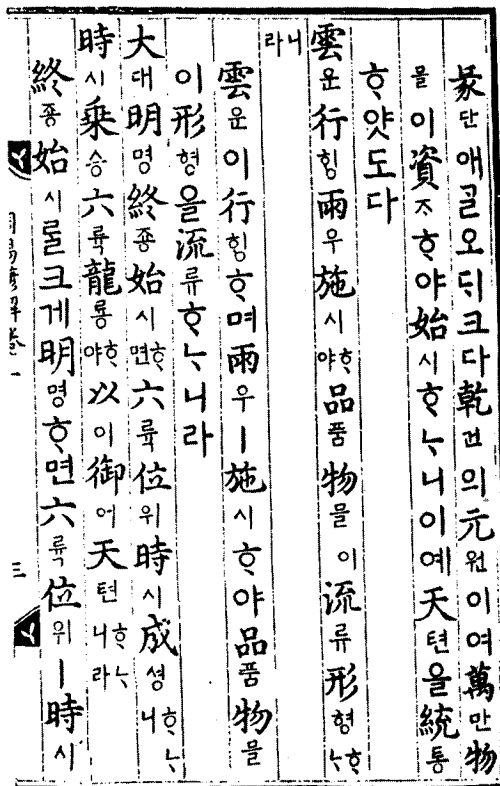 彖단애ᄀᆞᆯ오ᄃᆡ크다乾건의元원이여萬만物
믈이資ᄌᆞᄒᆞ야始시ᄒᆞᄂᆞ니이예天텬을統통
ᄒᆞ얏도다
雲운行ᄒᆡᆼ雨우施시ᄒᆞ야品품物믈이流류形형ᄒᆞᄂᆞ
니라
雲운이行ᄒᆡᆼᄒᆞ며雨우ㅣ施시ᄒᆞ야品품物믈
이形형을流류ᄒᆞᄂᆞ니라
大대明명終죵始시ᄒᆞ면六륙位위時시成셩ᄒᆞᄂᆞ니
時시乘승六륙龍룡ᄒᆞ야以이御어天텬ᄒᆞᄂᆞ니라
終죵始시ᄅᆞᆯ크게明명ᄒᆞ면六륙位위ㅣ時시
周易諺解卷一 三